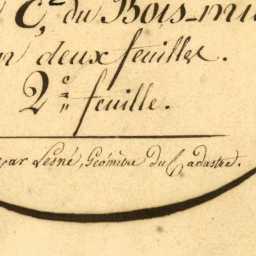 C.2 du Bois-mi
n deux feuilles.
2e feuille.
par Lesné, Géomètre du Cadastre.